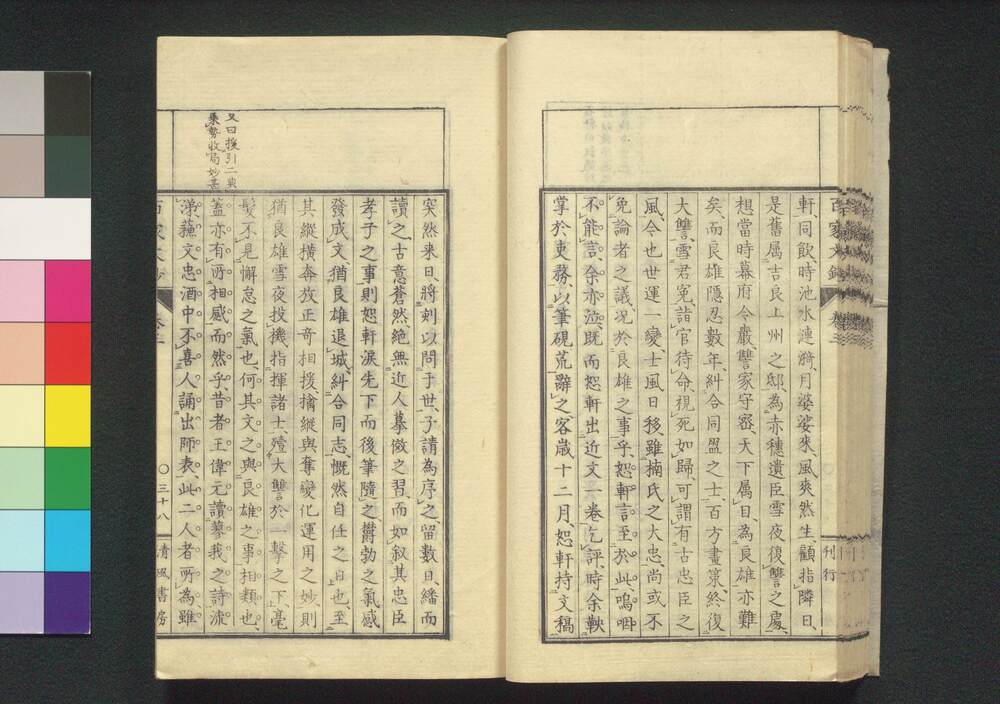 刊行
軒、同飲、時池水漣漪、月婆娑來、風爽然生、顧指隣曰、
是舊属吉良上州之邸、為赤穗遺臣雪夜復讐之處、
想當時幕府令嚴、讐家守密、天下属目、為良雄亦難
矣、而良雄隱忍數年、糾合同盟之士、百方畫策、終復
大讐、雪君冤、詣官待命、視死如歸、可謂有古忠臣之
風、今也世運一變、士風日移、雖楠氏之大忠、尚或不
免論者之議、况於良雄之事乎、恕軒言至於此、嗚咽
不能言、余亦泣、既而恕軒出近文一卷、乞評、時余鞅
掌於吏務、以筆硯荒辭之、客歳十二月、恕軒持文稿
又曰援引二典
乗勢收局妙甚
突然来曰、將刻以問于世、子請為序之、留數日、繙而
讀之、古意蒼然、絶無近人摹倣之習、而如叙其忠臣
孝子之事、則恕軒淚先下而後筆隨之、欝勃之氣感
發成文、猶良雄退城、糾合同志、慨然自任之日也、至
其縱橫奔放、正奇相援、擒縱與奪、變化運用之妙、則
猶良雄雪夜投機、指揮諸士、殪大讐於一擊之下、毫
髮不見懈怠之氣也、何其文之與良雄之事相類也、
蓋亦有所相感而然乎、昔者王偉元讀蓼莪之詩流
涕、蘓文忠酒中不喜人誦出師表、此二人者所為雖
三十八
清風書房